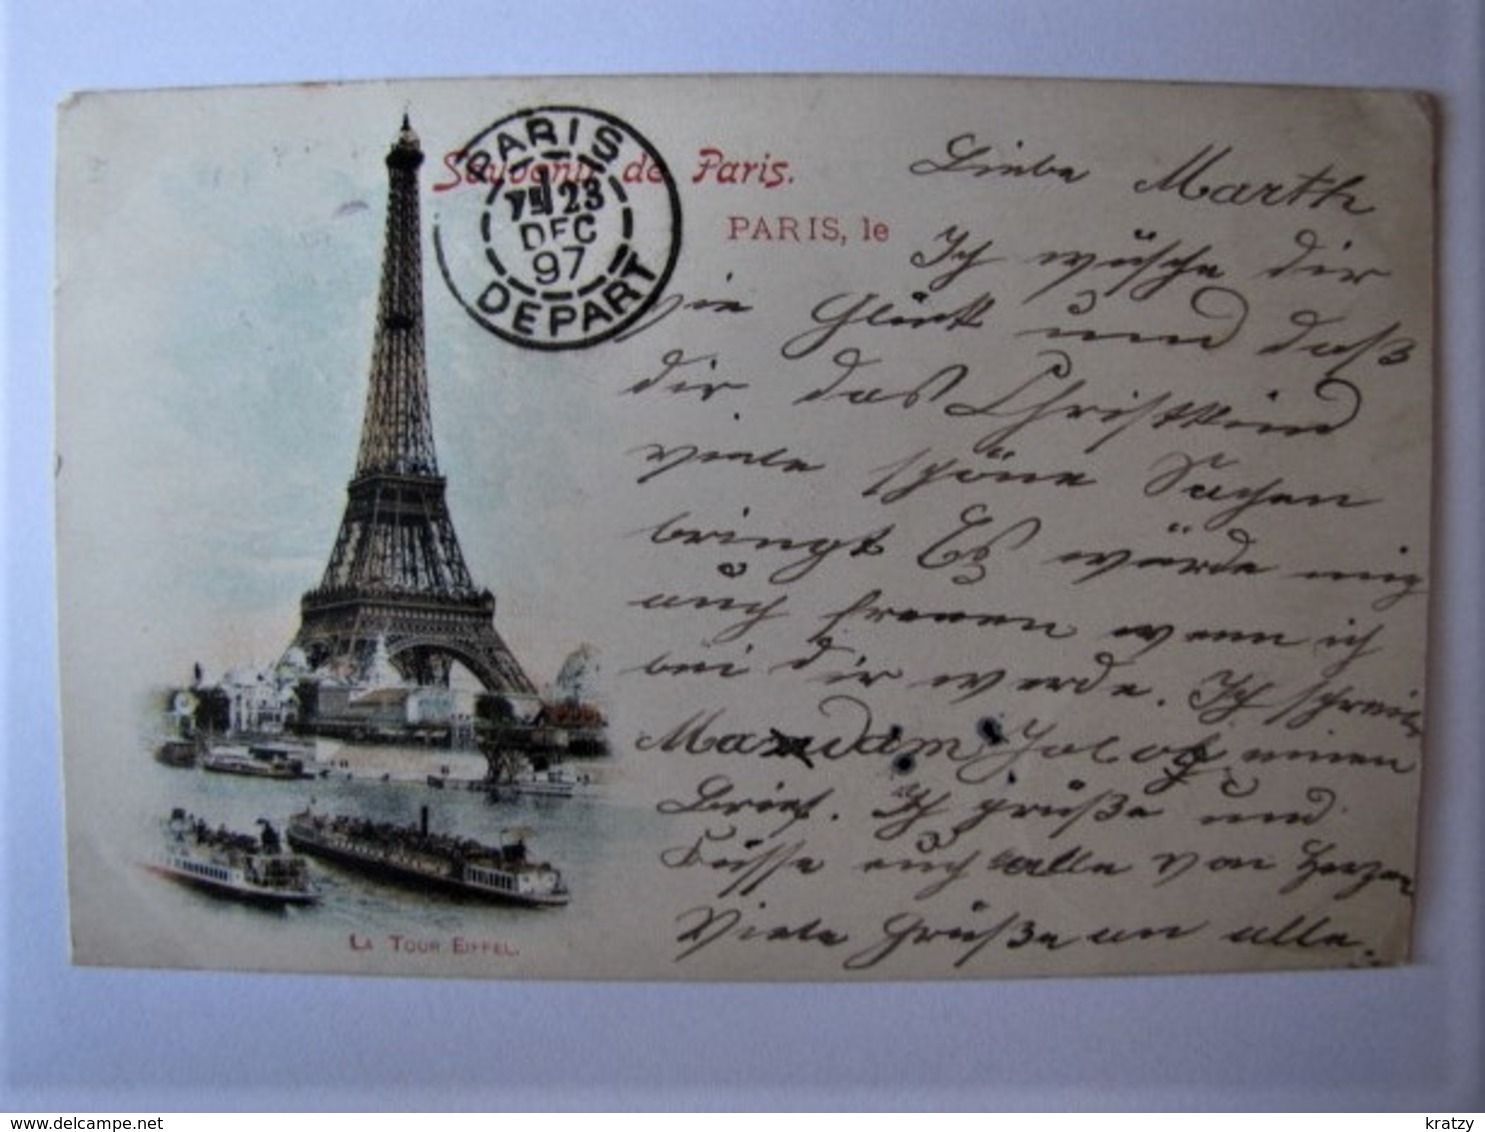 Souvenir de Paris.
PARIS
7E 23
DEC
97
DEPART
PARIS, le
Liebe Marth
Ich wüsche dir
vie Glück und daß
dir das Christkind
viele schöne Sachen
bringt Es würde mig
auch freuen wenn ich
bei dir werde. Ich schreibe
Madam einen
Brief. Ich grüße und
Küsse euch alle von Herzen
Viele Grüße an alle.
LA TOUR EIFFEL.
delcampe.net
kratzy